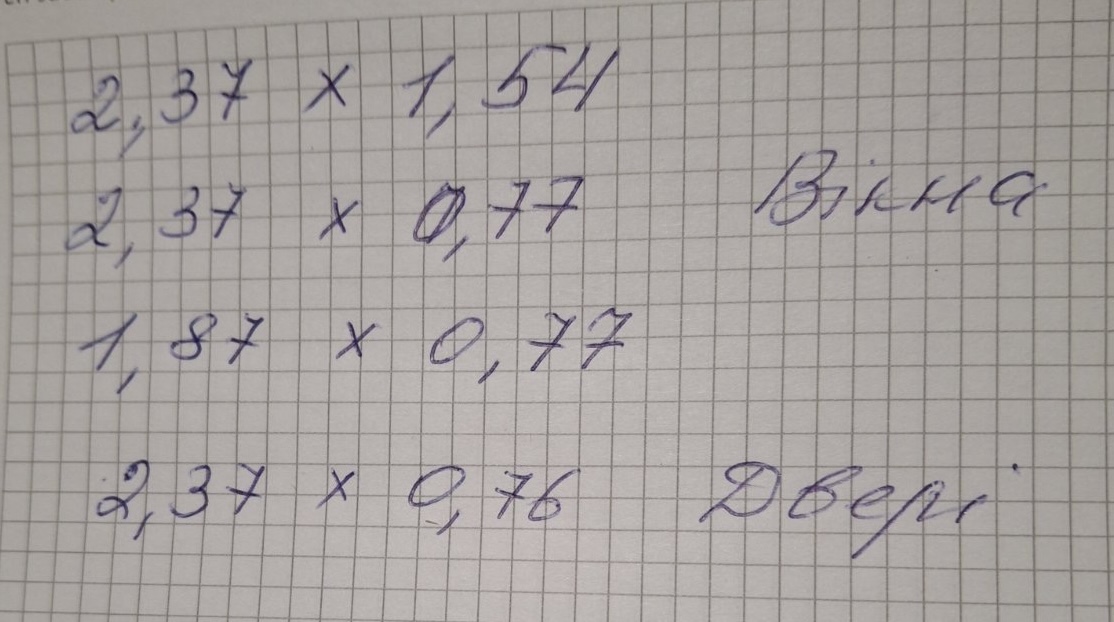 2,37 x 1,54
2,37 x 0,77 Вікна
1,87 x 0,77
2,37 x 0,76 Двері